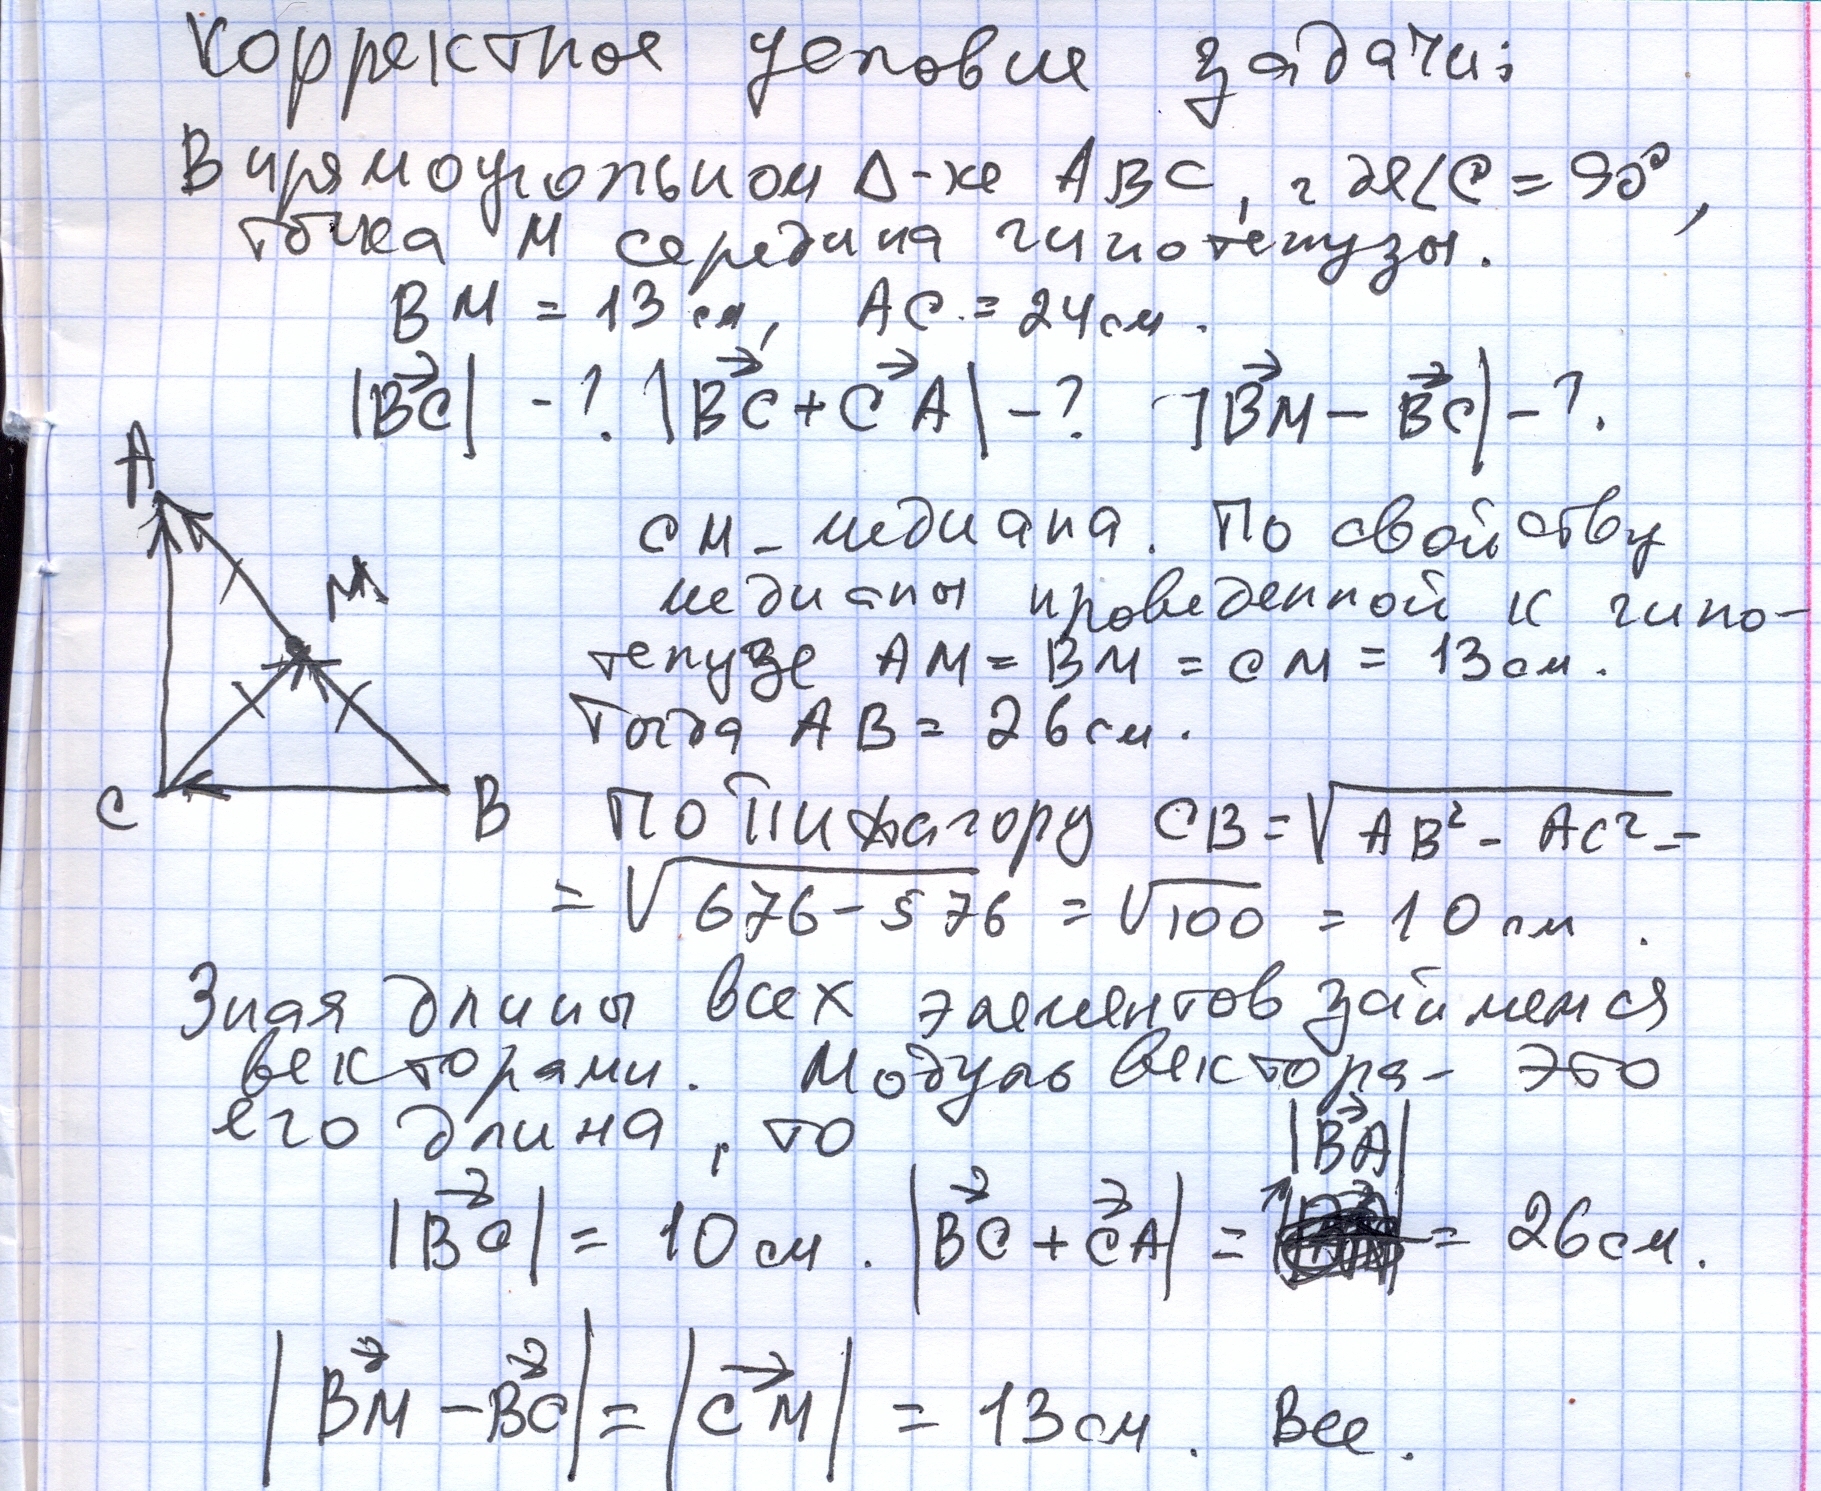 Корректное условие задачи:
В прямоугольном Δ-ке ABC, где ∠C = 90°,
точка M середина гипотенузы.
BM = 13 см, AC = 24 см.
|BC⃗| - ? |BC⃗ + CA⃗| - ? |BM⃗ - BC⃗| - ?.
A
M
C
B
CM - медиана. По свойству
медианы проведенной к гипо-
тенузе AM = BM = CM = 13 см.
Тогда AB = 26 см.
По Пифагору CB = √(AB² - AC²) =
= √(676 - 576) = √100 = 10 см.
Зная длины всех элементов займемся
векторами. Модуль вектора - это
его длина, то
|BA⃗|
|BC⃗| = 10 см. |BC⃗ + CA⃗| = = 26 см.
|BM⃗ - BC⃗| = |CM⃗| = 13 см. Все.